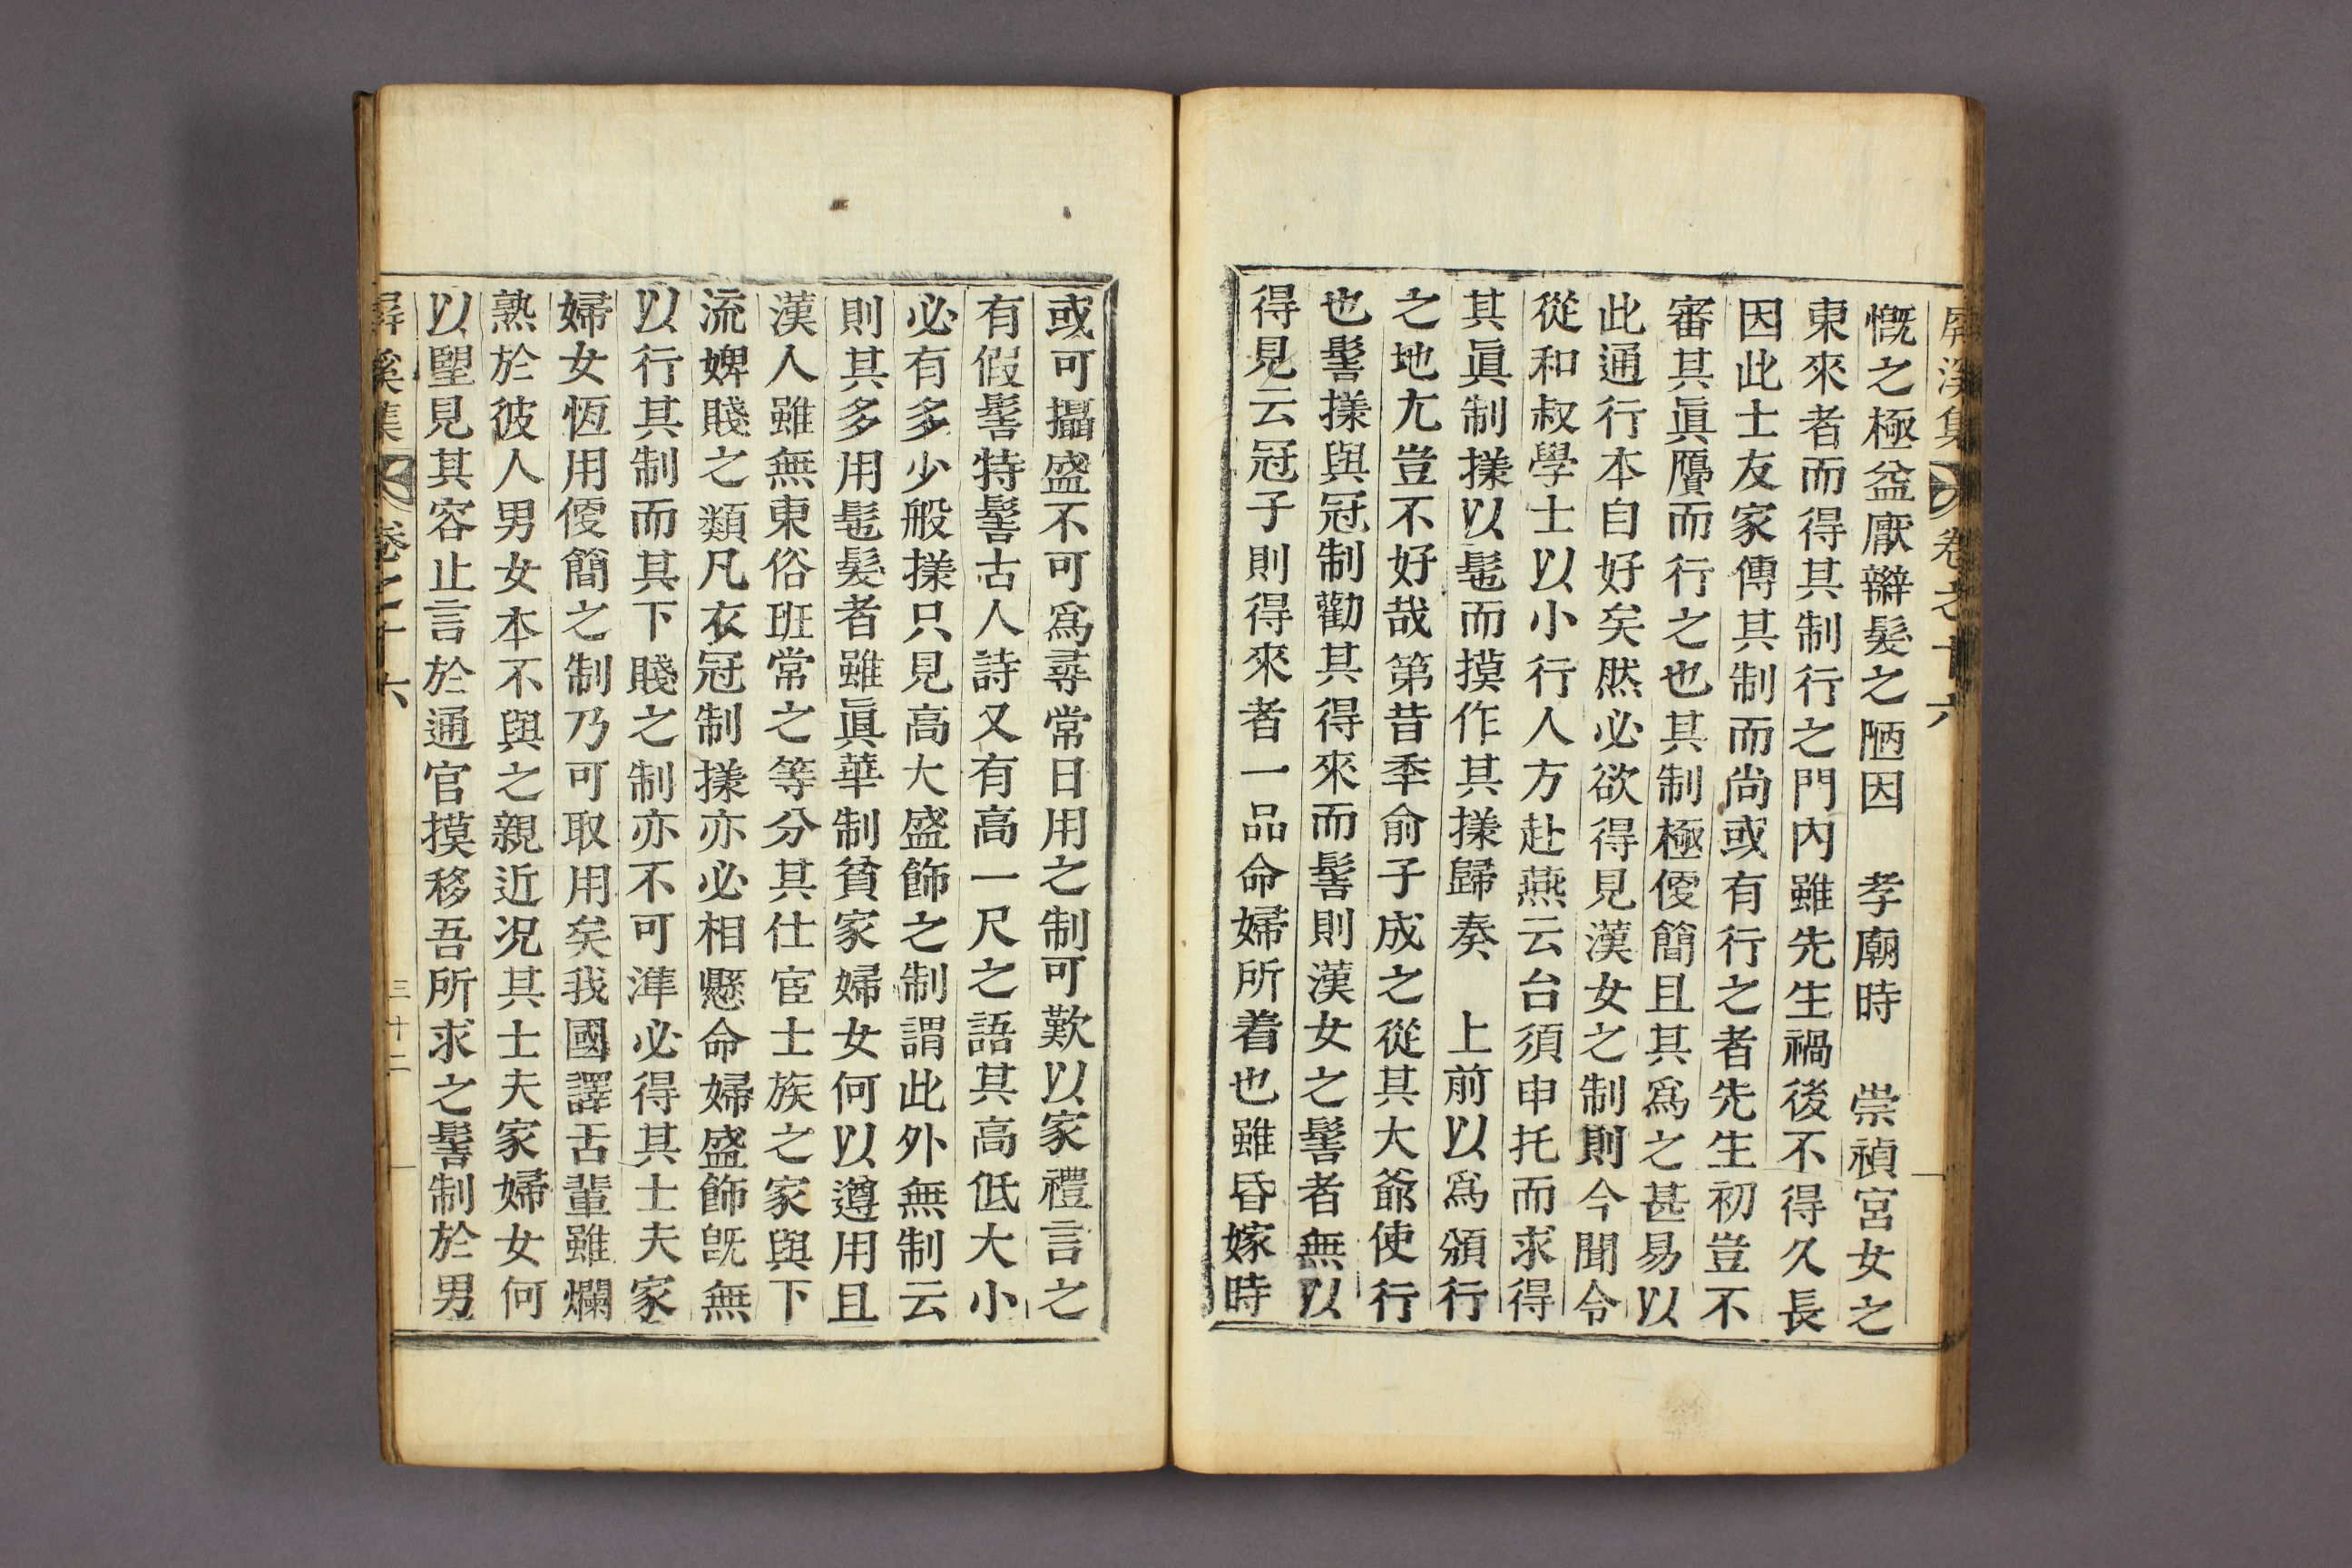 屛溪集 卷之十六
慨之極益厭辮髮之陋因 孝廟時 崇禎宮女之
東來者而得其制行之門內雖先生禍後不得久長
因此士友家傳其制而尚或有行之者先生初豈不
審其眞贋而行之也其制極便簡且其爲之甚易以
此通行本自好矣然必欲得見漢女之制則今聞令
從和叔學士以小行人方赴燕云台須申托而求得
其眞制㨾以髢而摸作其㨾歸奏 上前以爲頒行
之地尤豈不好哉第昔年俞子成之從其大爺使行
也髻㨾與冠制勸其得來而髻則漢女之髻者無以
得見云冠子則得來者一品命婦所着也雖昏嫁時
或可攝盛不可爲尋常日用之制可歎以家禮言之
有假髻特髻古人詩又有高一尺之語其高低大小
必有多少般㨾只見高大盛飾之制謂此外無制云
則其多用髢髮者雖眞華制貧家婦女何以遵用且
漢人雖無東俗班常之等分其仕宦士族之家與下
流婢賤之類凡衣冠制㨾亦必相懸命婦盛飾旣無
以行其制而其下賤之制亦不可準必得其士夫家
婦女恆用便簡之制乃可取用矣我國譯舌輩雖爛
熟於彼人男女本不與之親近况其士夫家婦女何
以望見其容止言於通官摸移吾所求之髻制於男
屛溪集 卷之十六 三十二